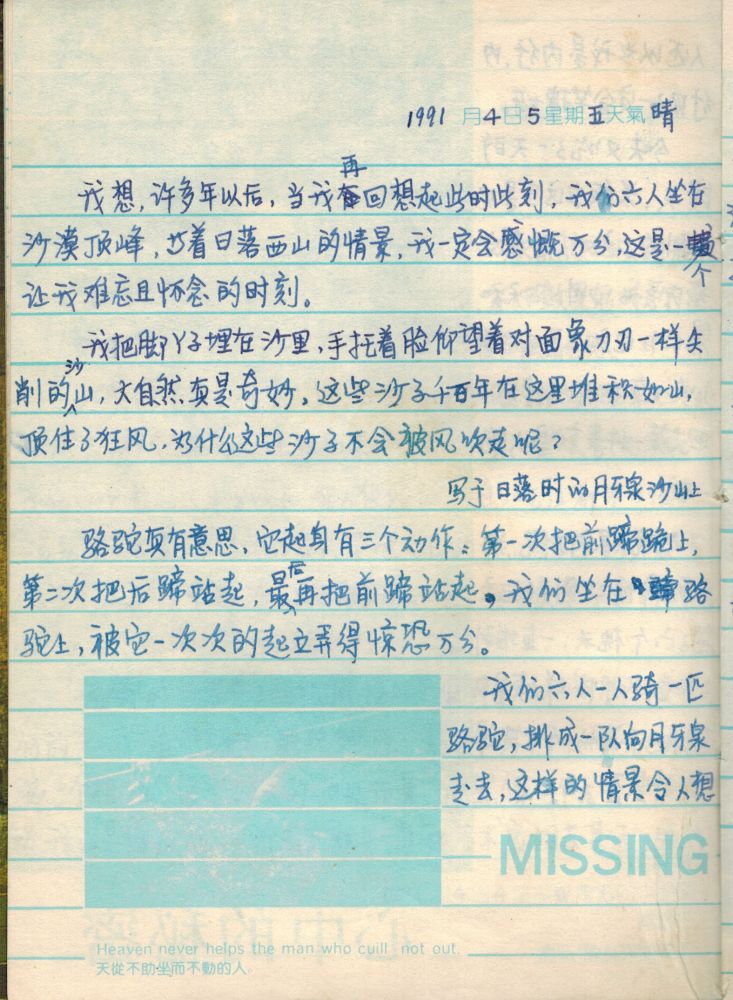 1991 月4日5星期五天氣晴
我想,许多年以后,当我再回想起此时此刻,我们六人坐在
沙漠顶峰,看着日落西山的情景,我一定会感慨万分,这是一个
让我难忘且怀念的时刻。
我把脚丫子埋在沙里,手托着脸仰望着对面象刀刃一样尖
削的沙山,大自然真是奇妙。这些沙子千百年在这里堆积如山,
顶住了狂风,为什么这些沙子不会被风吹走呢?
写于日落时的月牙泉沙山上
骆驼真有意思,它起身有三个动作:第一次把前蹄跪上,
第二次把后蹄站起,最后再把前蹄站起。我们坐在骆
驼上,被它一次次的起立弄得惊恐万分。
我们六人一人骑一匹
骆驼,排成一队向月牙泉
走去,这样的情景令人想
MISSING
心中的秘密
Heaven never helps the man who cuill not out.
天從不助坐而不動的人